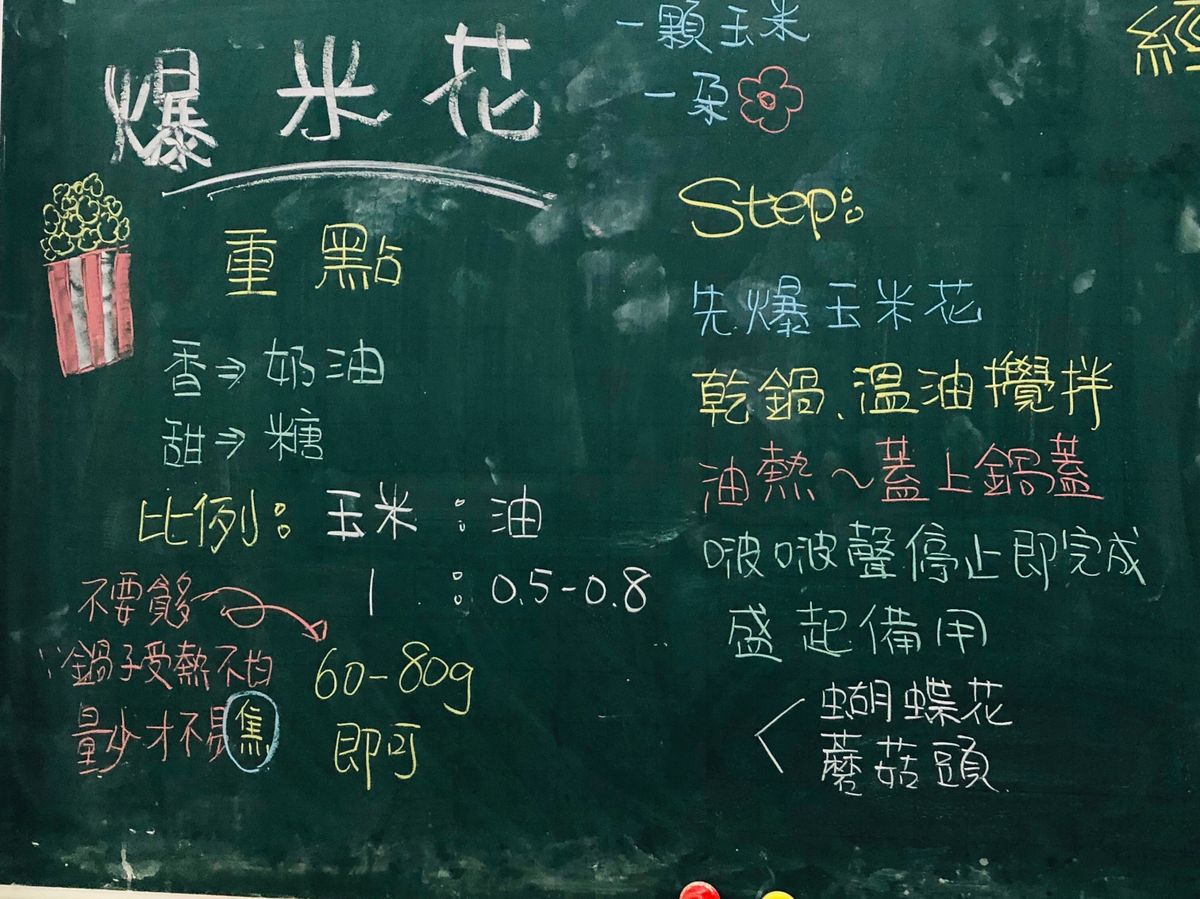 爆米花
重點
香⇒奶油
甜⇒糖
比例：玉米：油
1：0.5-0.8
不要貪多
∵鍋子受熱不均
量少才不易焦
60-80g
即可
一顆玉米
一朵
Step:
先爆玉米花
乾鍋、溫油攪拌
油熱~蓋上鍋蓋
啵啵聲停止即完成
盛起備用
蝴蝶花
蘑菇頭
經